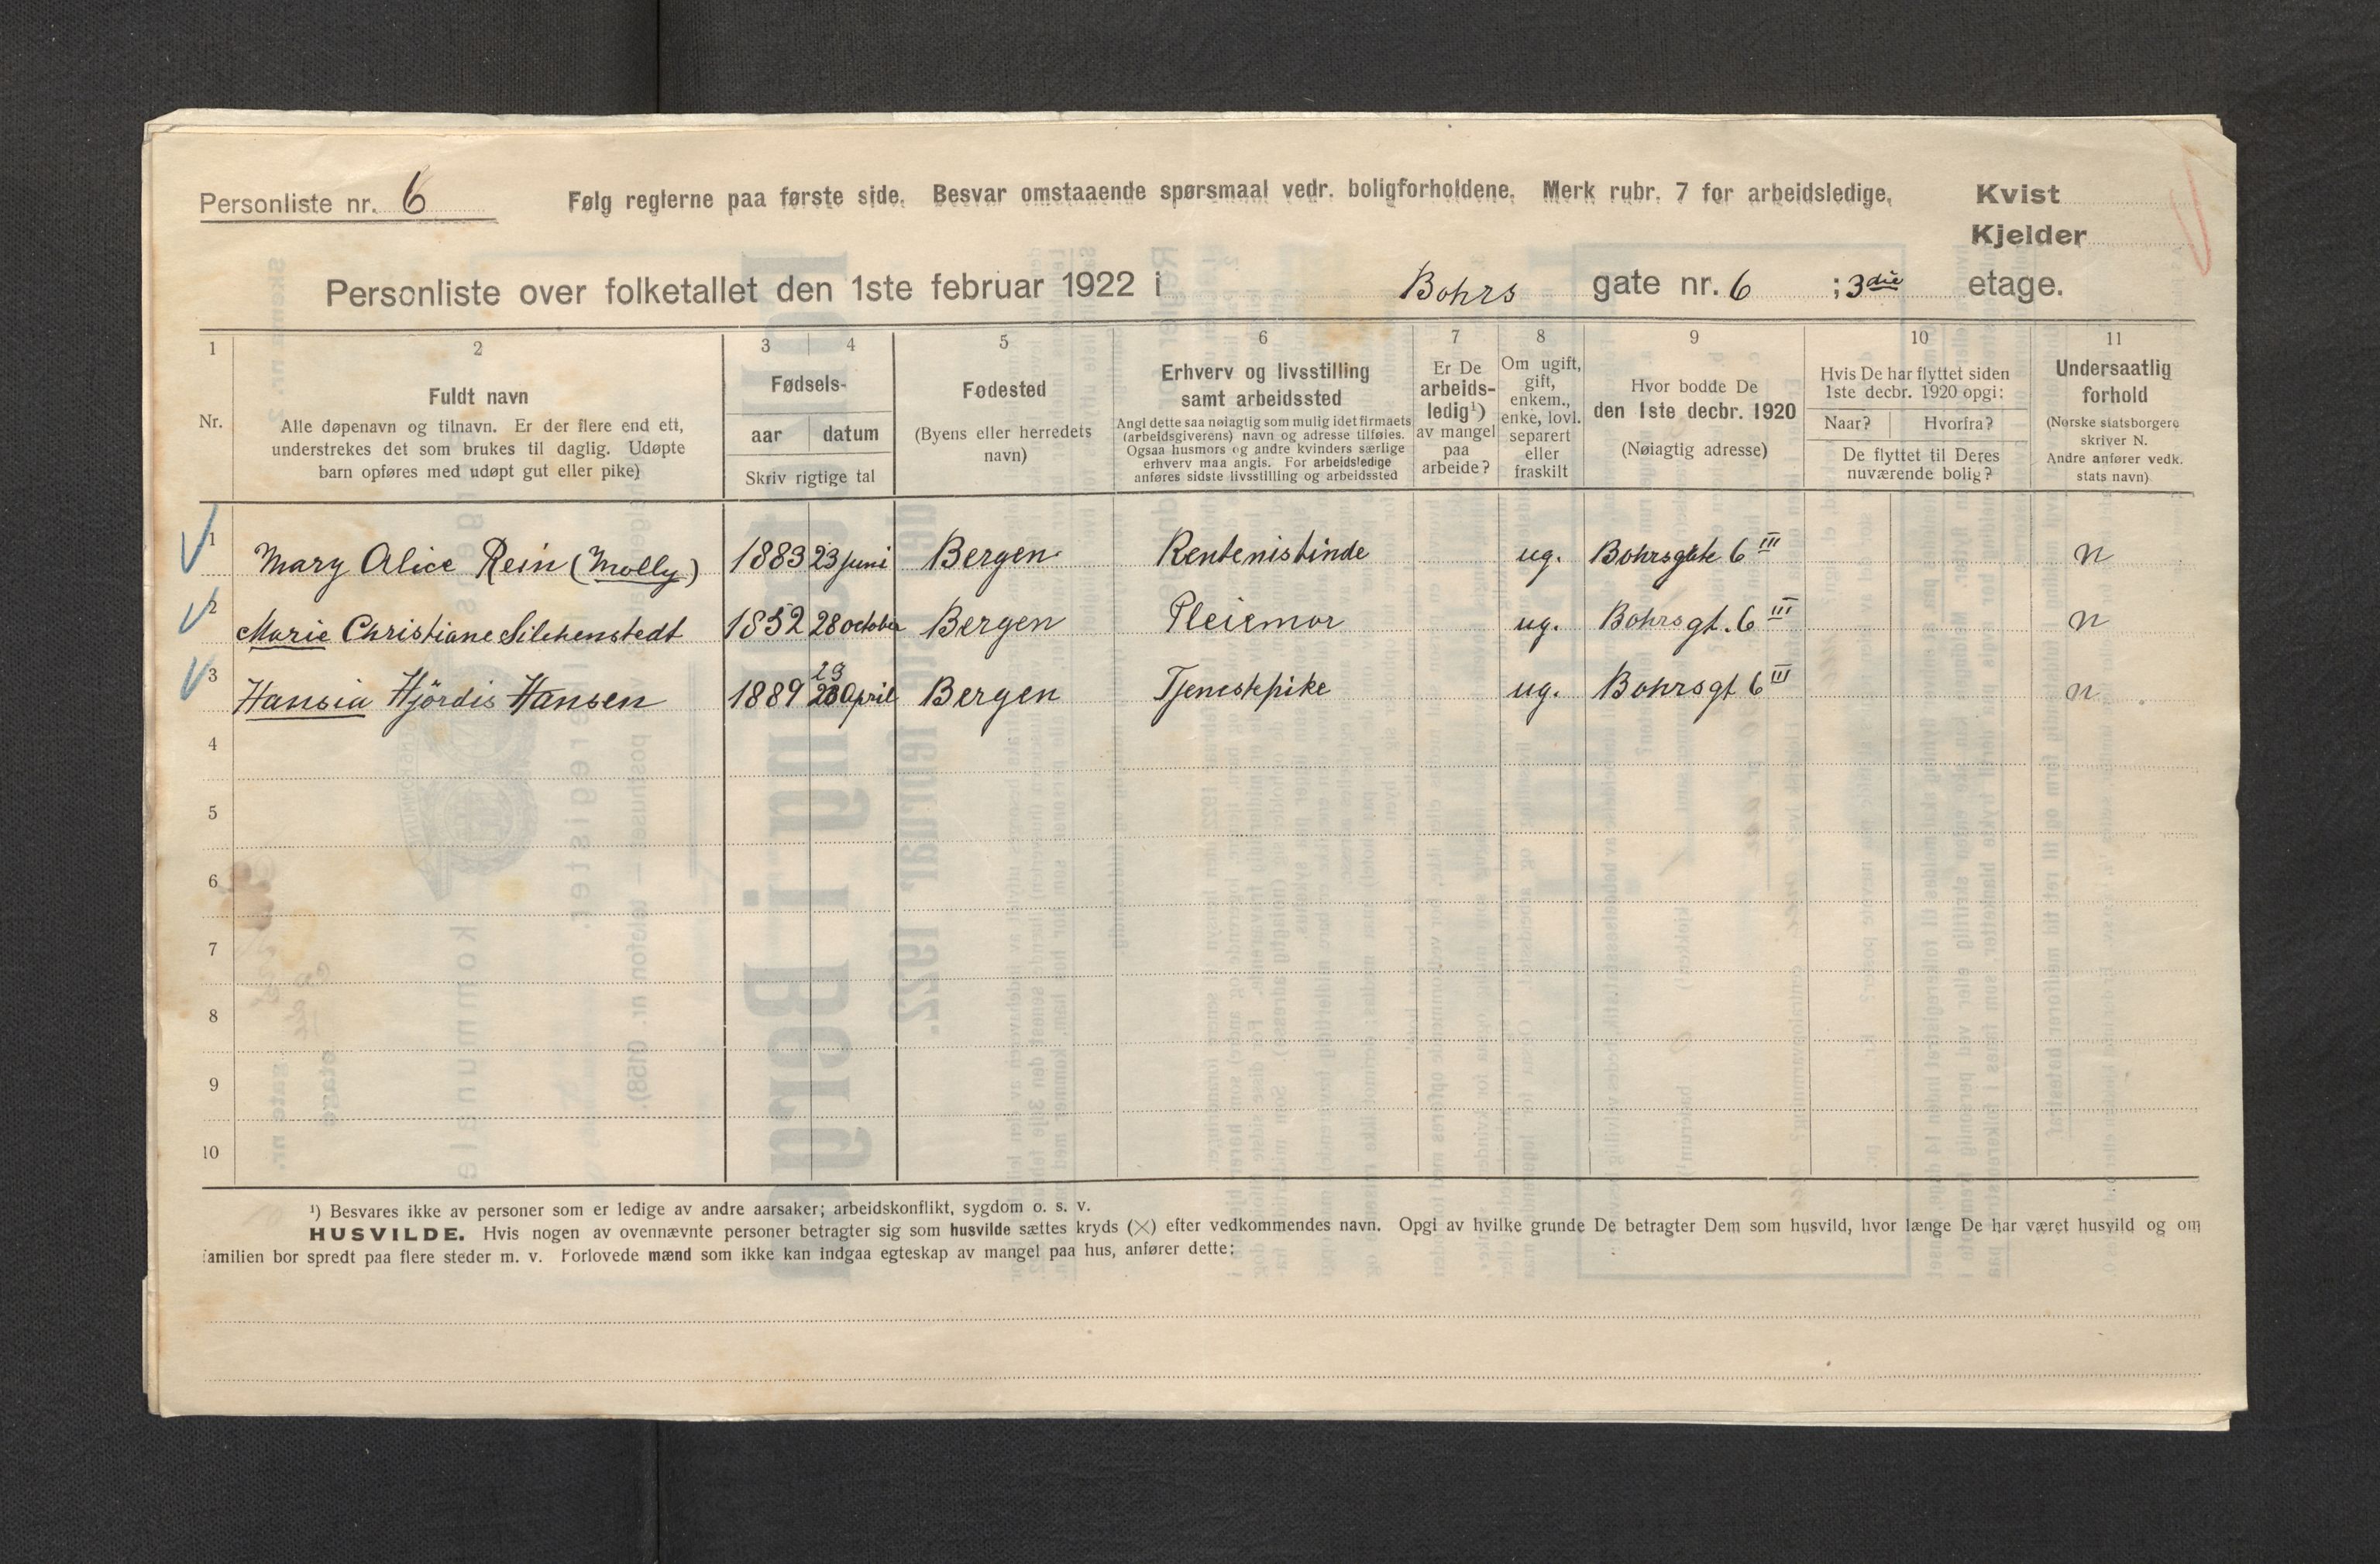 Personliste nr. 6
Følg reglerne paa første side. Besvar omstaaende spørsmaal vedr. boligforholdene. Merk rubr. 7 for arbeidsledige.
Kvist
Kjelder
Personliste over folketallet den 1ste februar 1922 i Bohrs gate nr. 6 ; 3die etage.
1 2 3 4 5 6 7 8 9 10 11
Nr.
Fuldt navn
Alle døpenavn og tilnavn. Er der flere end ett,
understrekes det som brukes til daglig. Udøpte
barn opføres med udøpt gut eller pike)
Fødsels-
aar datum
Skriv rigtige tal
Fødested
(Byens eller herredets
navn)
Erhverv og livsstilling
samt arbeidssted
Angi dette saa nøiagtig som mulig idet firmaets
(arbeidsgiverens) navn og adresse tilføies.
Ogsaa husmors og andre kvinders særlige
erhverv maa angis. For arbeidsledige
anføres sidste livsstilling og arbeidssted
Er De
arbeids-
ledig¹)
av mangel
paa
arbeide?
Om ugift,
gift,
enkem.,
enke, lovl.
separert
eller
fraskilt
Hvor bodde De
den 1ste decbr. 1920
(Nøiagtig adresse)
Hvis De har flyttet siden
1ste decbr. 1920 opgi:
Naar? Hvorfra?
De flyttet til Deres
nuværende bolig?
Undersaatlig
forhold
(Norske statsborgere
skriver N.
Andre anfører vedk.
stats navn)
1 Mary Alice Rein (Molly) 1883 23 juni Bergen Rentenistinde ug. Bohrsgate 6 III n
2 Marie Christiane 1852 28 october Bergen Pleiemor ug. Bohrsgt. 6 III n
3 Hansia Hjördis Hansen 1889 23 April Bergen Tjenestepike ug. Bohrsgt 6 III n
4
5
6
7
8
9
10
¹) Besvares ikke av personer som er ledige av andre aarsaker; arbeidskonflikt, sygdom o. s. v.
HUSVILDE. Hvis nogen av ovennævnte personer betragter sig som husvilde sættes kryds (×) efter vedkommendes navn. Opgi av hvilke grunde De betragter Dem som husvild, hvor længe De har været husvild og om
familien bor spredt paa flere steder m. v. Forlovede mænd som ikke kan indgaa egteskap av mangel paa hus, anfører dette: